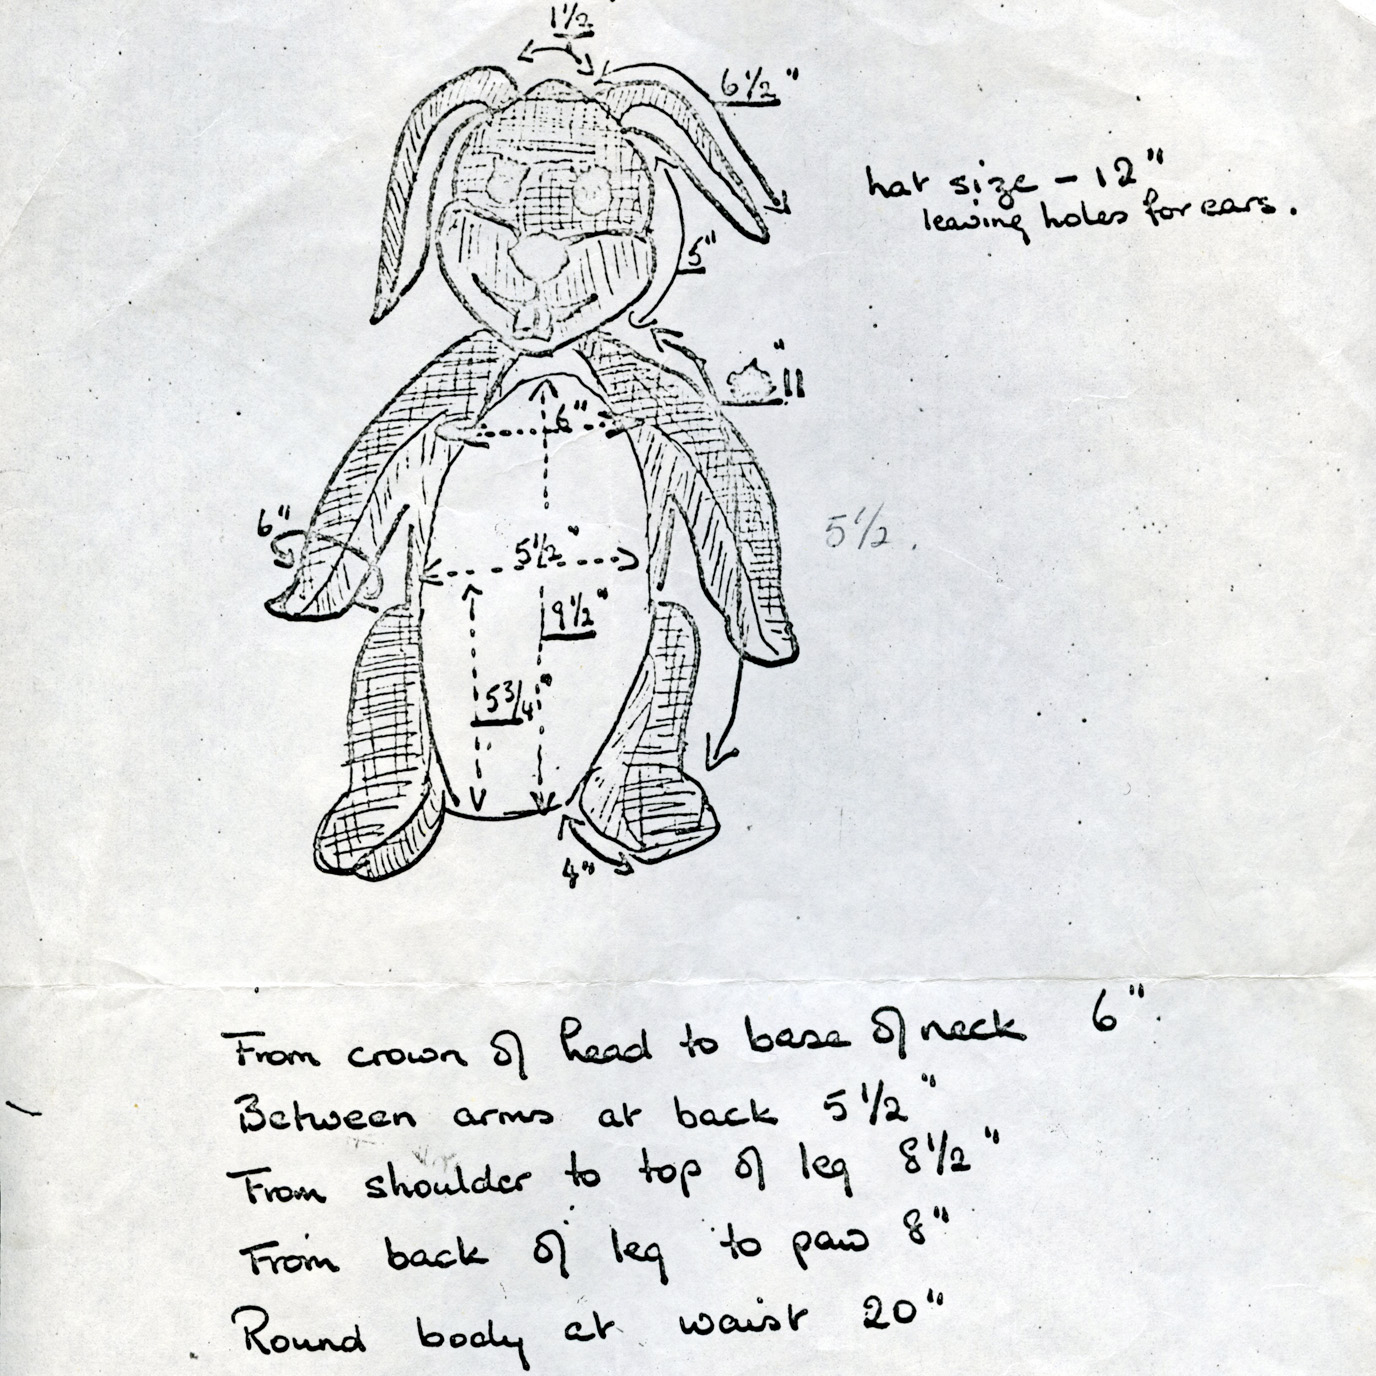 1½
6½"
hat size - 12"
leaving holes for ears.
5"
11"
6"
6"
5½"
5½.
9½"
5¾"
4"
From crown of head to base of neck 6".
Between arms at back 5½"
From shoulder to top of leg 8½"
From back of leg to paw 8"
Round body at waist 20"